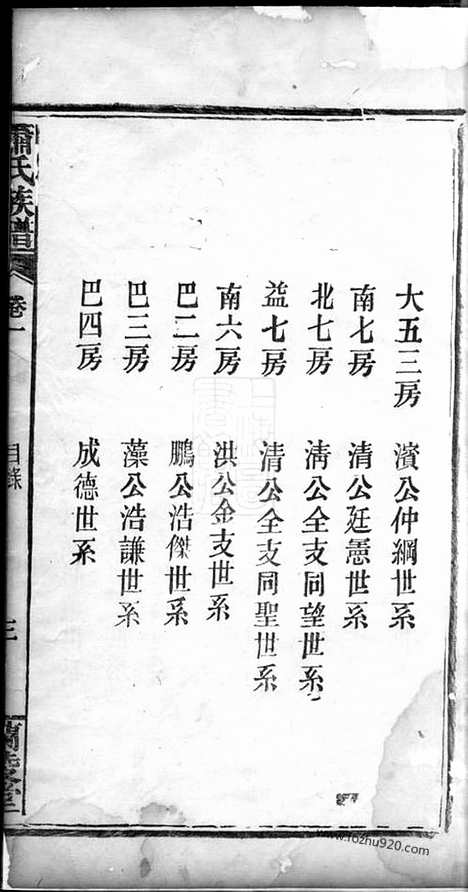 大五三房 濱公仲綱世系
南七房 清公廷憲世系
北七房 淸公全支同望世系
益七房 清公全支同聖世系
南六房 洪公金支世系
巴二房 鵬公浩傑世系
巴三房 藻公浩謙世系
巴四房 成德世系
蕭氏族譜 卷一 目錄 三
www.fozhu920.com